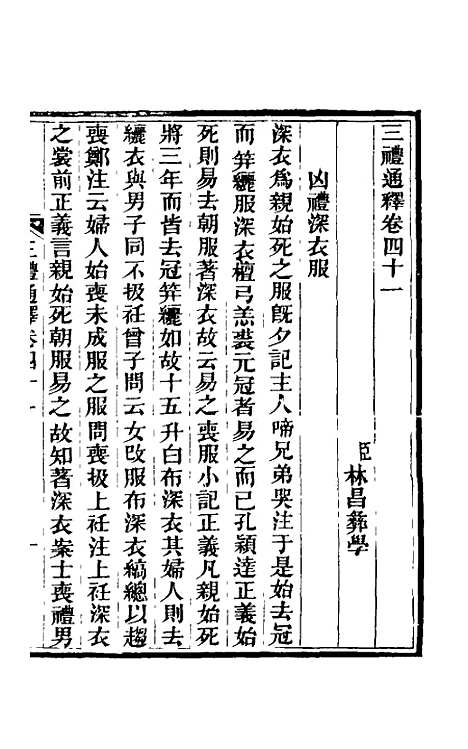 三禮通釋卷四十一
臣林昌彝學
凶禮深衣服
深衣爲親始死之服旣夕記主人啼兄弟哭注于是始去冠
而笄纚服深衣檀弓羔裘元冠者易之而已孔穎達正義始
死則易去朝服著深衣故云易之喪服小記正義凡親始死
將三年而皆去冠笄纚如故十五升白布深衣其婦人則去
纚衣與男子同不扱衽曾子問云女改服布深衣縞總以趨
喪鄭注云婦人始喪未成服之服問喪扱上衽注上衽深衣
之裳前正義言親始死朝服易之故知著深衣案士喪禮男
三禮通釋卷四十一
一